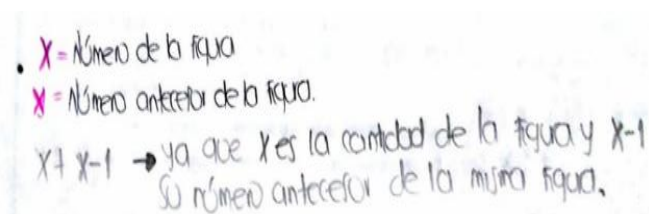 • X = Número de la figura
X = Número antecesor de la figura.
X + X-1 → ya que X es la cantidad de la figura y X-1
Su número antecesor de la misma figura.